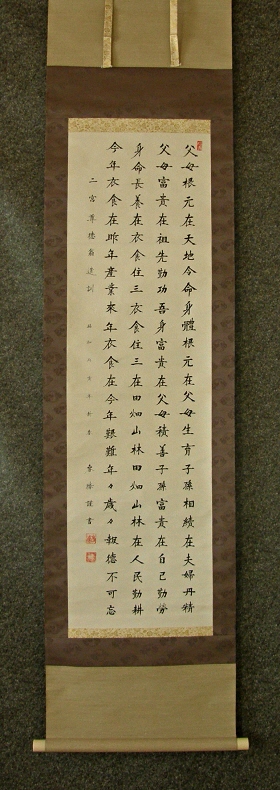 父母根元在天地令命身體根元在父母生育子孫相続在夫婦丹精
父母富貴在祖先勤功吾身富貴在父母積善子孫富貴在自己勤労
身命長養在衣食住三衣食住三在田畑山林田畑山林在人民勤耕
今年衣食在昨年産業来年衣食在今年艱難年々歳々報徳不可忘
二宮尊徳翁遺訓
謹書